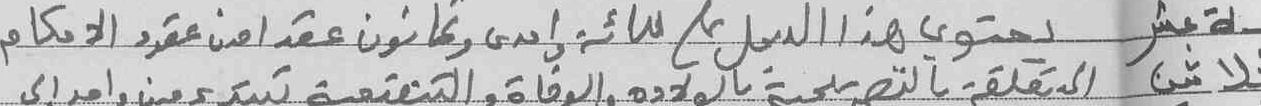 ـة عشر يحتوي هذا السجل على مائة إحدى وثمانون عقدا من عقود الاحكام
ثلاثين المتعلقة بالتصريحية بالولادة والوفاة و تبتدئ من واحد الى